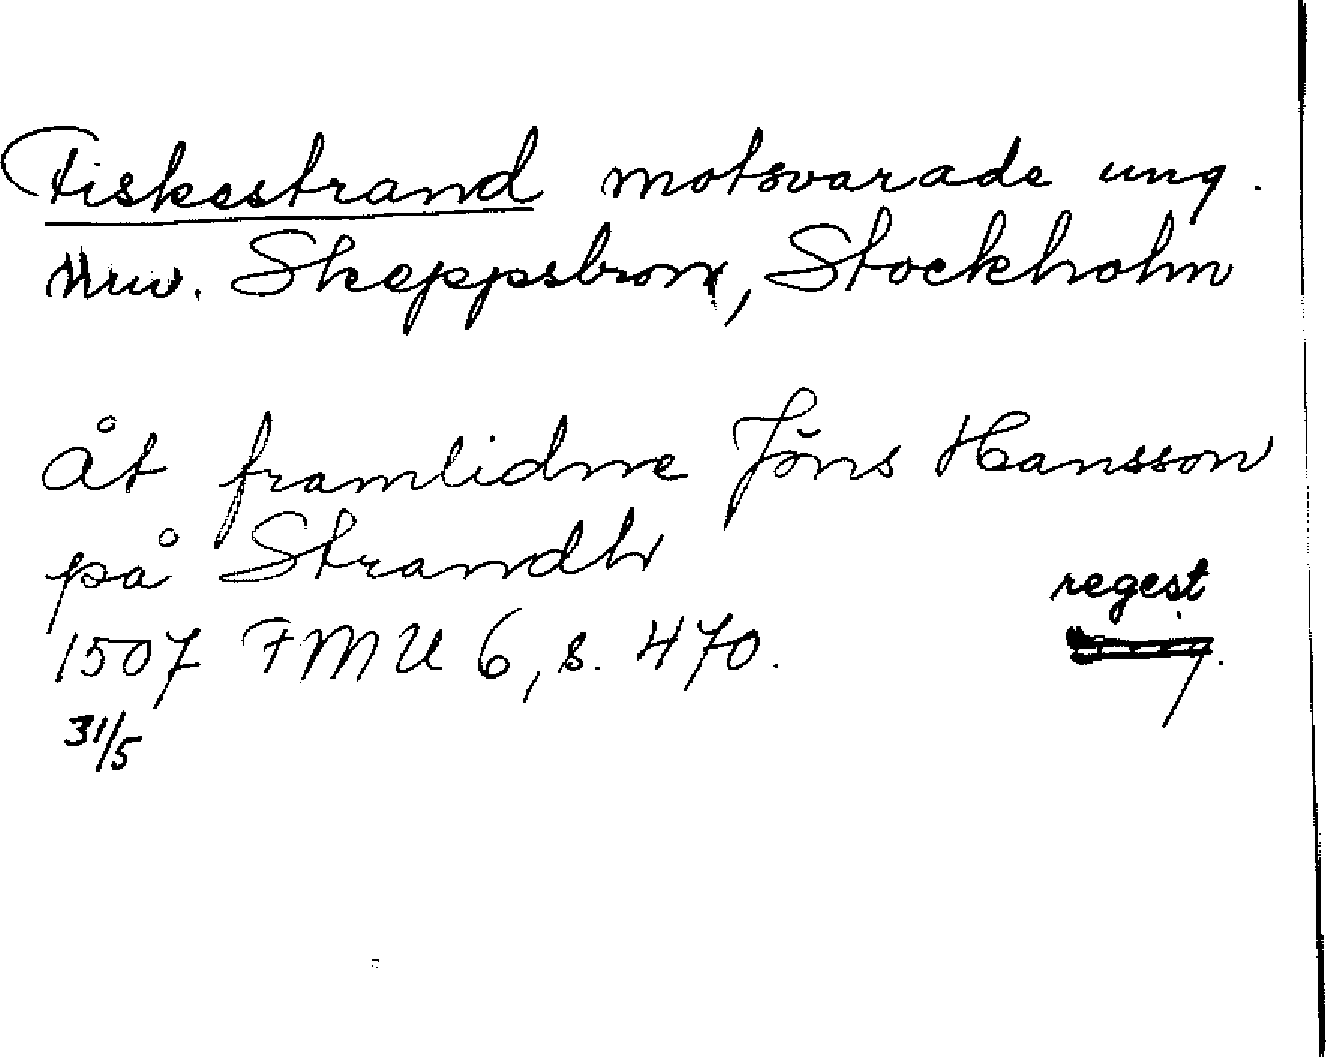 Fiskestrand motsvarade ung.
nuv. Skeppsbron, Stockholm
åt framlidne Jöns Hansson
på Strandh
regest
1507 FMU 6, s. 470.
31/5